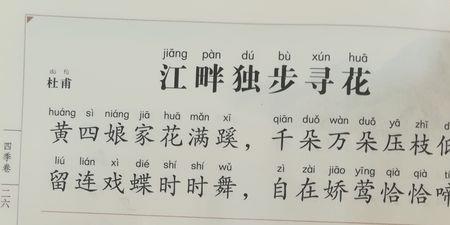 jiāng pàn dú bù xún huā
江畔独步寻花
杜甫
huáng sì niáng jiā huā mǎn xī qiān duǒ wàn duǒ yā zhī
黄四娘家花满蹊，千朵万朵压枝低
liú lián xì dié shí shí wǔ zì zài jiāo yīng qià qià
留连戏蝶时时舞，自在娇莺恰恰啼
四季卷
二六